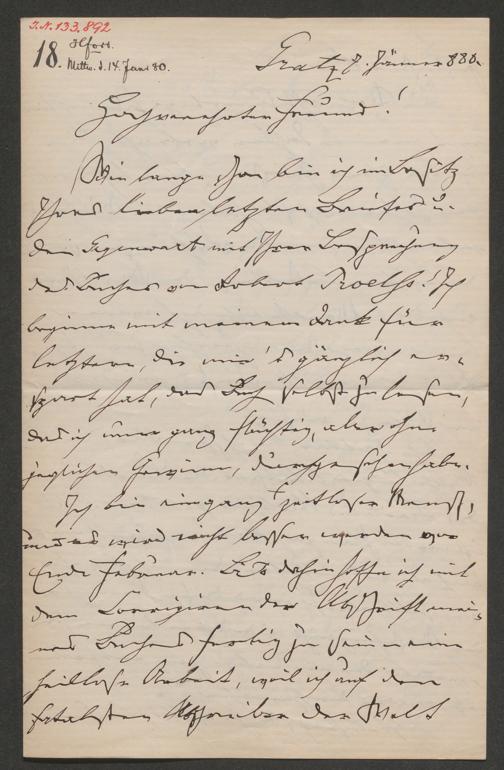 I.N. 133.892
18. Mittw. d. 14. Jan. 80.
Gratz 7. Jänner 880.
Hochverehrter Freund!
Wie lange schon bin ich im Besitz
Ihres lieben letzten Briefes u.
der Gegenwart mit Ihrer Besprechung
des Buches von Robert Proelss! Ich
beginne mit meinem Dank für
letztere, die mir's gänzlich er-
spart hat, das Buch selbst zu lesen,
das ich nur ganz flüchtig, aber ohne
jeglichen Gewinn, durchgesehen habe.
Ich bin ein ganz zeitloser Mensch,
und es wird nicht besser werden vor
Ende Februar. Bis dahin hoffe ich mit
dem Corrigiren der Abschrift mei-
nes Buches fertig zu sein eine
heillose Arbeit, weil ich auf den
fatalsten Abschreiber der Welt